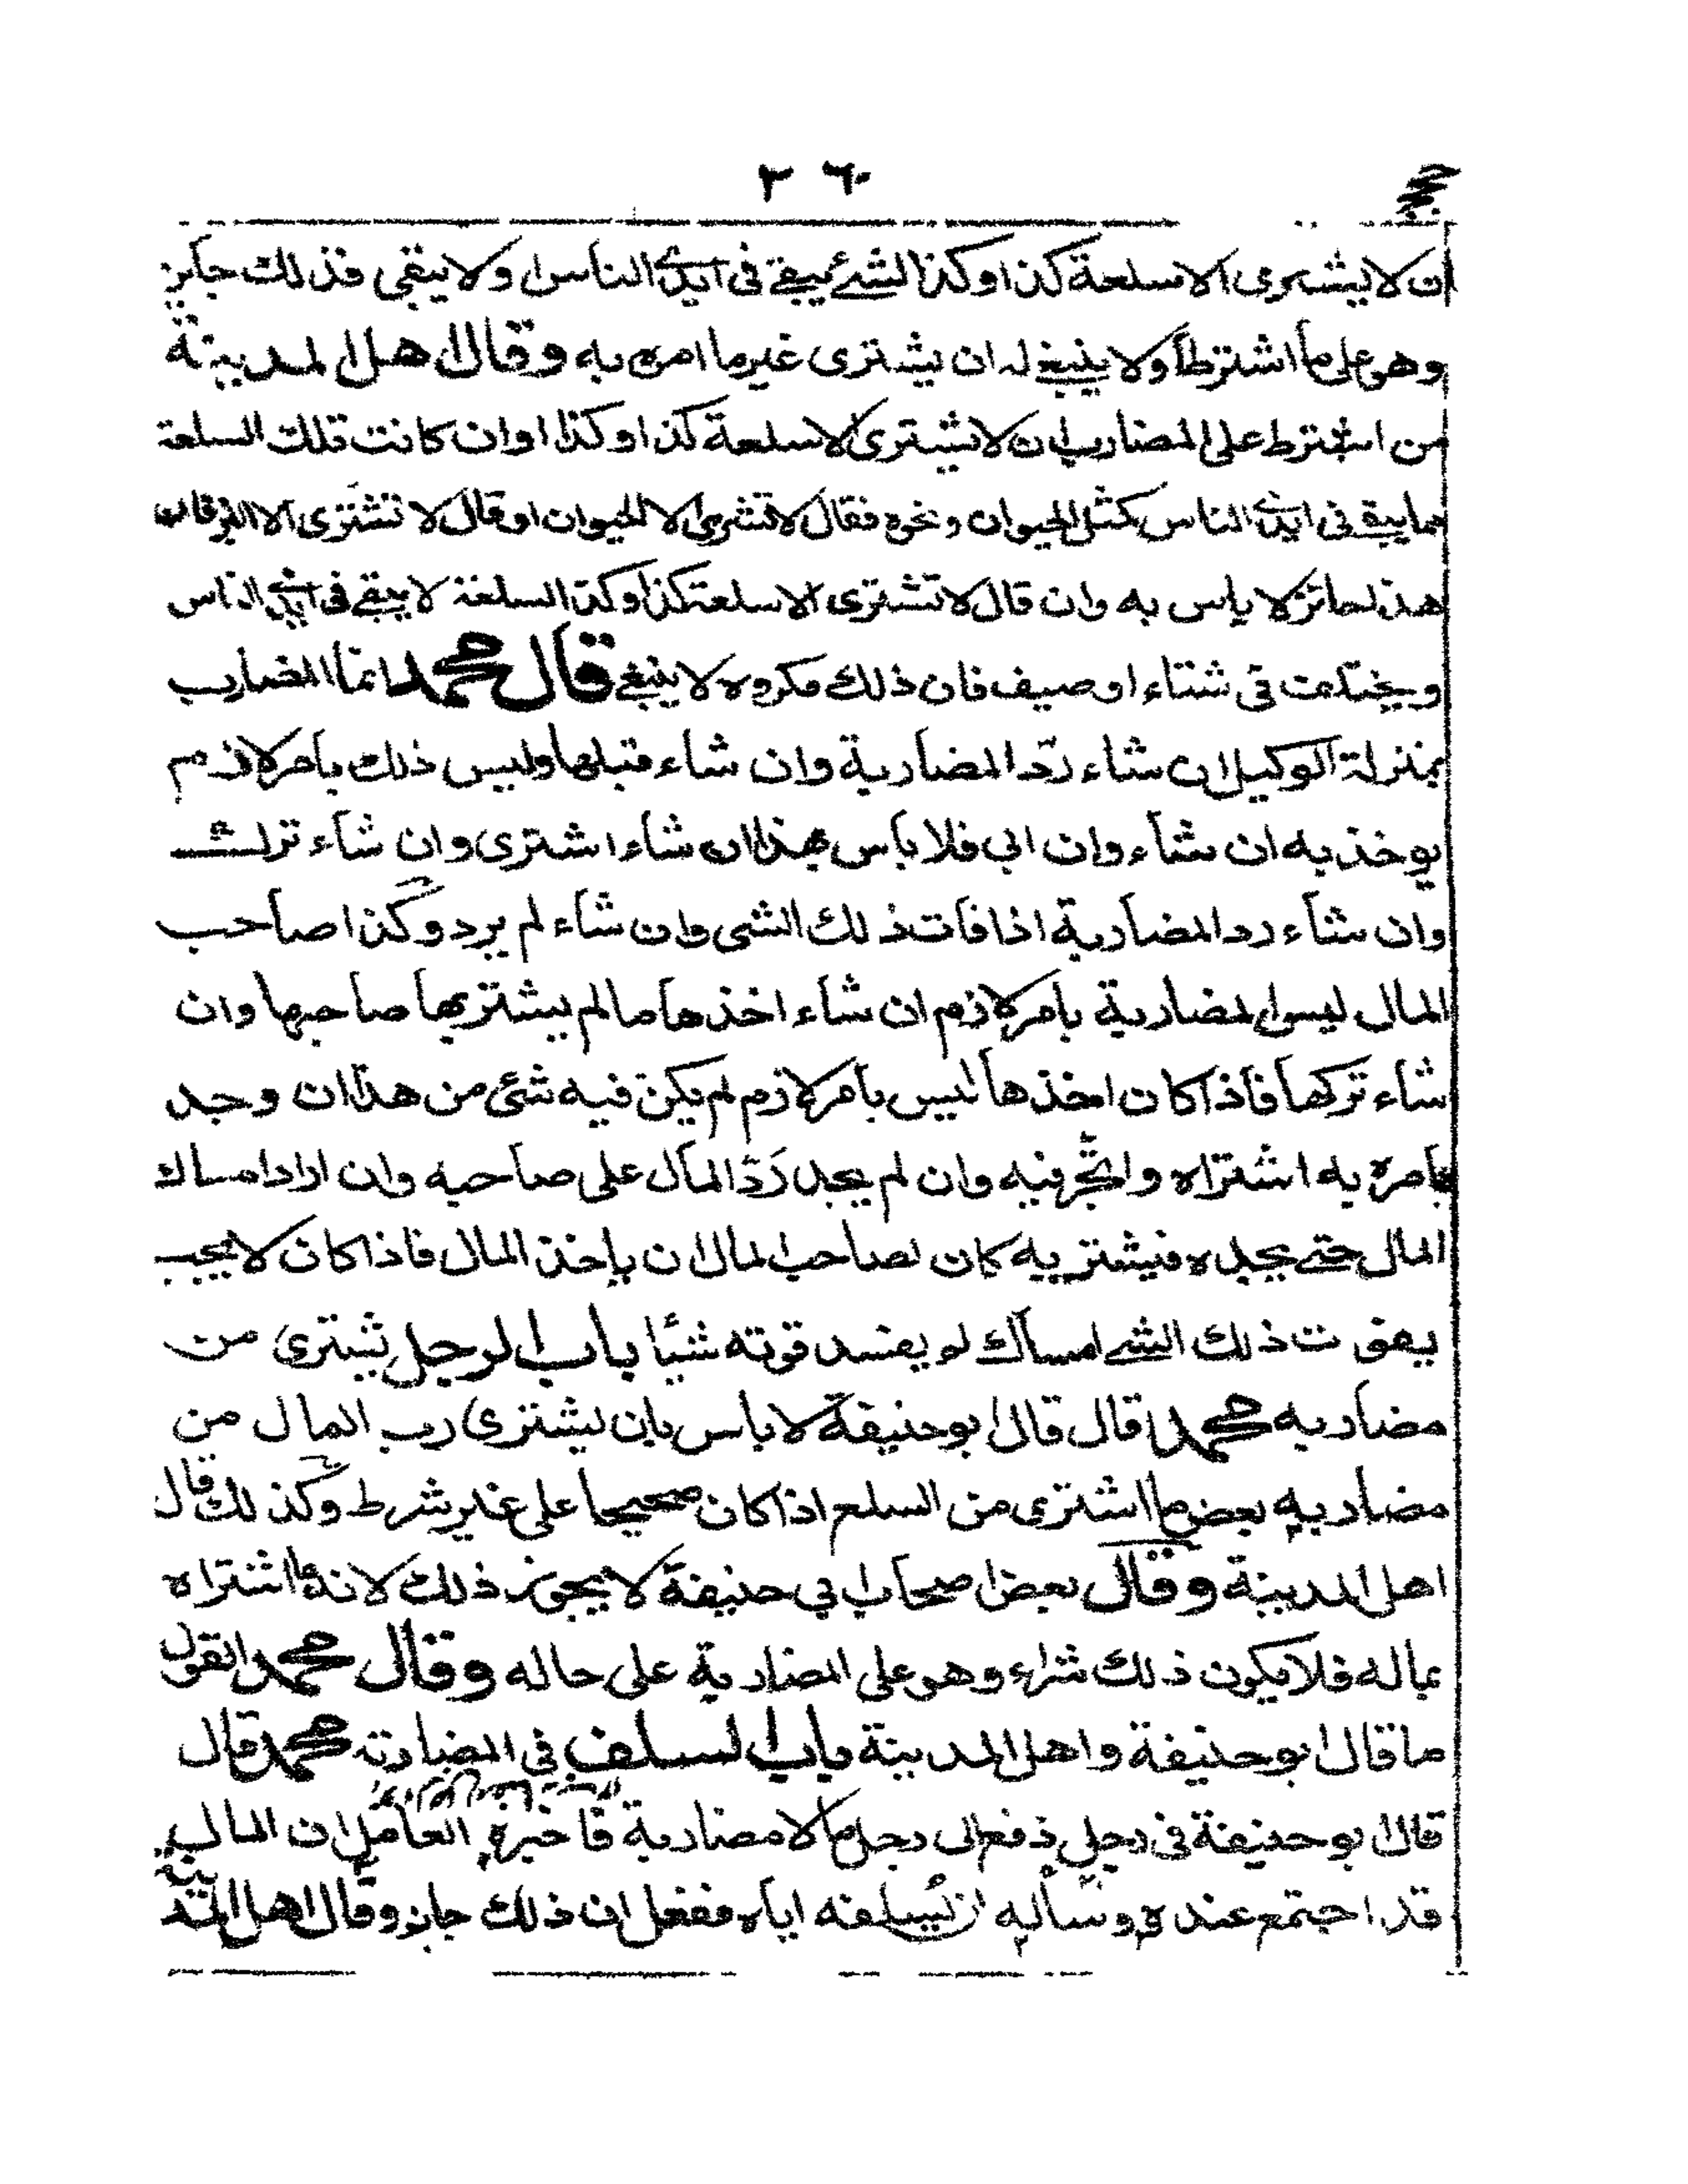 ٢٦٠
ان لا يشترى الا سلعة كذا وكذا الشئ يبقے فى ايدى الناس او لا يبقى فذلك جايز
وهو على ما اشترطا ولا ينبغے له ان يشترى غير ما امره به وقال اهل المدينة
من اشترط على المضارب ان لا يشترى الا سلعة كذا وكذا وان كانت تلك السلعة
مما يبقے فى ايدى الناس كمثل الحيوان ونحوه فقال لا تشترى الا الحيوان او قال لا تشترى الا
هذا جائز لا باس به وان قال لا تشترى الا سلعة كذا وكذا السلعة لا يبقے فى ايدى الناس
ويختلف فى شتاء او صيف فان ذلك مكروه لا ينبغے قال محمد انما المضارب
بمنزلة الوكيل ان شاء ردّ المضاربة وان شاء قبلها وليس ذلك بامر لازم
يوخذ به ان شاء وان ابى فلا باس بهذا ان شاء اشترى وان شاء ترك
وان شاء رد المضاربة اذا فات ذلك الشى وان شاء لم يرد وكذا صاحب
المال ليس المضاربة بامر لازم ان شاء اخذها ما لم يشتر بها صاحبها وان
شاء تركها فاذا كان اخذها ليس بامر لازم لم يكن فيه شئ من هذا ان وجد
مامره به اشتراه واتّجر فيه وان لم يجد رَدّ المال على صاحبه وان اراد امساك
المال حتے يجده فيشتريه كان لصاحب المال ان ياخذ المال فاذا كان لا يجب
بفوت ذلك الشے امساك لو يفسد قوته شيئا باب الرجل يشترى من
مضاربه محمد قال قال ابو حنيفة لا باس بان يشترى رب المال من
مضاربه بعض ما اشترى من السلع اذا كان صحيحا على غير شرط وكذلك قال
اهل المدينة وقال بعض اصحاب ابي حنيفة لا يجوز ذلك لانه انما اشتراه
بماله فلا يكون ذلك شراء وهو على المضاربة على حاله وقال محمد القول
ما قال ابو حنيفة واهل المدينة باب السلف فى المضاربة محمد قال
قال ابو حنيفة فى رجل دفع الى رجل مالا مضاربة فاخبره العامل ان المال
قد اجتمع عنده وساله ان يسلفه اياه ففعل ان ذلك جايز وقال اهل المدينة